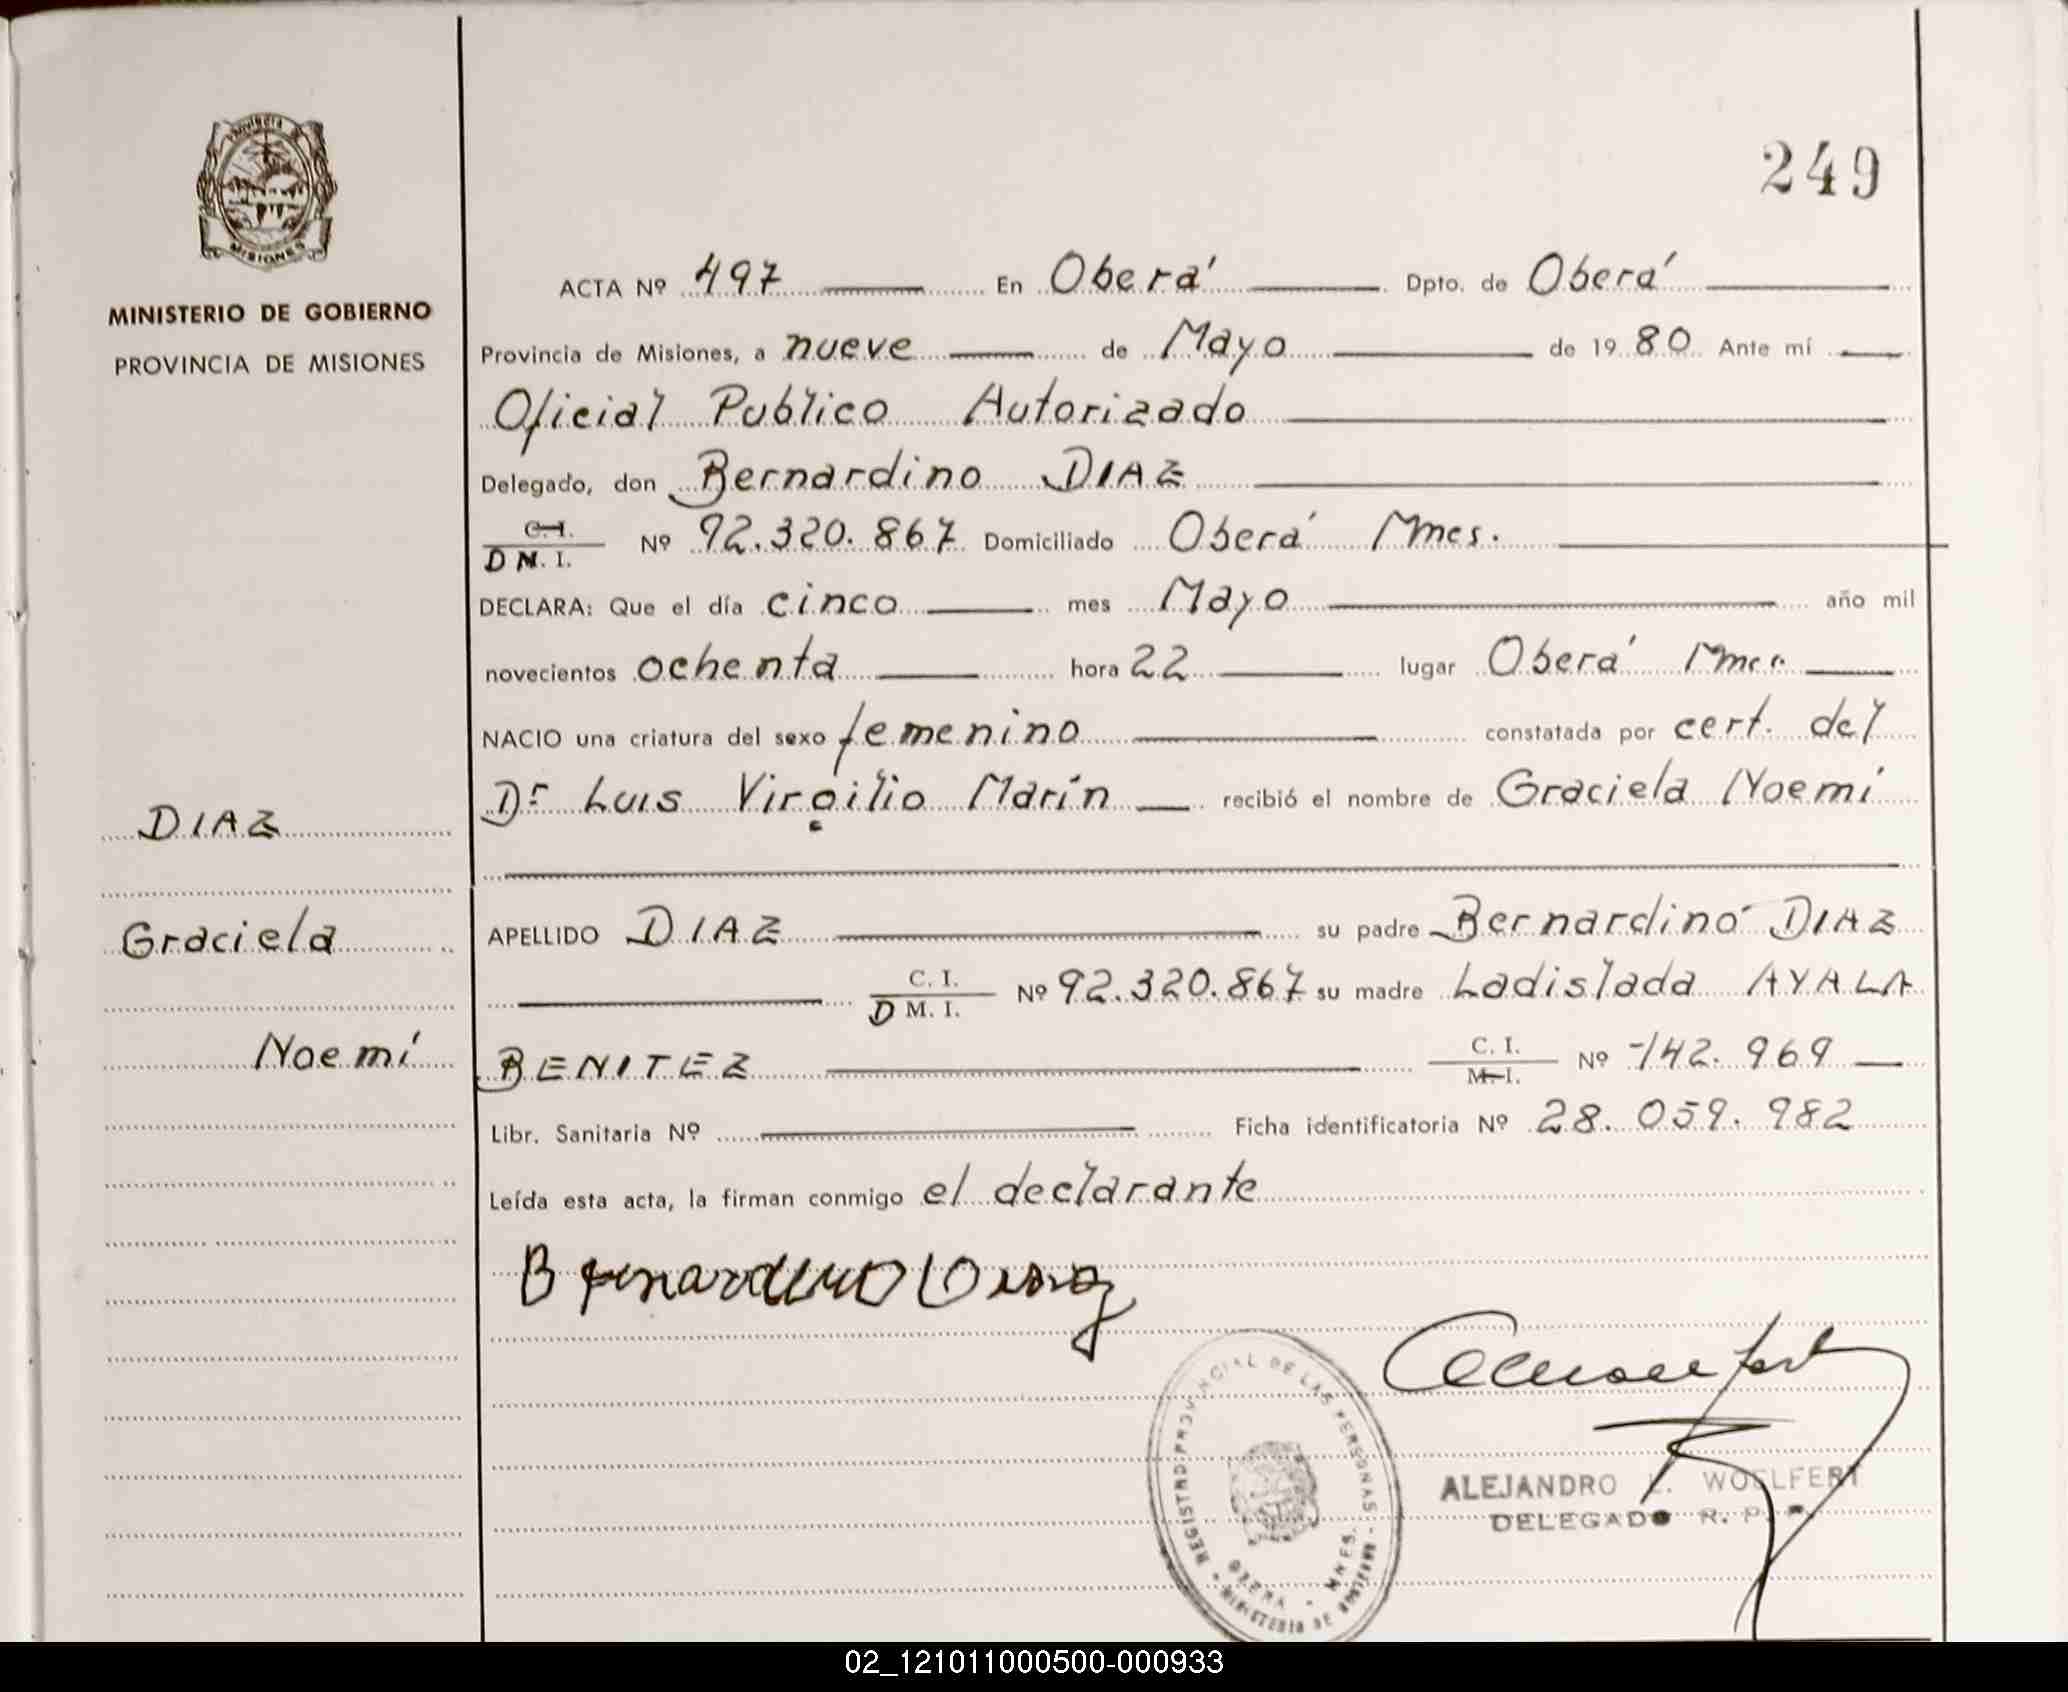 249
PROVINCIA DE
MISIONES
MINISTERIO DE GOBIERNO
PROVINCIA DE MISIONES
DIAZ
Graciela
Noemí
ACTA Nº 497 En Oberá Dpto. de Oberá
Provincia de Misiones, a nueve de Mayo de 1980 Ante mí
Oficial Publico Autorizado
Delegado, don Bernardino DIAZ
C.I.
D M. I. Nº 92.320.867 Domiciliado Oberá Mnes.
DECLARA: Que el día cinco mes Mayo año mil
novecientos ochenta hora 22 lugar Oberá Mnes.
NACIO una criatura del sexo femenino constatada por cert. del
Dr Luis Virgilio Marín recibió el nombre de Graciela Noemí
APELLIDO DIAZ su padre Bernardino DIAZ
C. I.
D M. I. Nº 92.320.867 su madre Ladislada AYALA
BENITEZ C. I.
M. I. Nº 142.969
Libr. Sanitaria Nº Ficha identificatoria Nº 28.059.982
Leída esta acta, la firman conmigo el declarante
Bernardino Diaz
REGISTRO PROVINCIAL DE LAS PERSONAS
OBERA - MNES.
MINISTERIO DE GOBIERNO
ALEJANDRO L. WOELFERT
DELEGADO R. P. P.
02_121011000500-000933